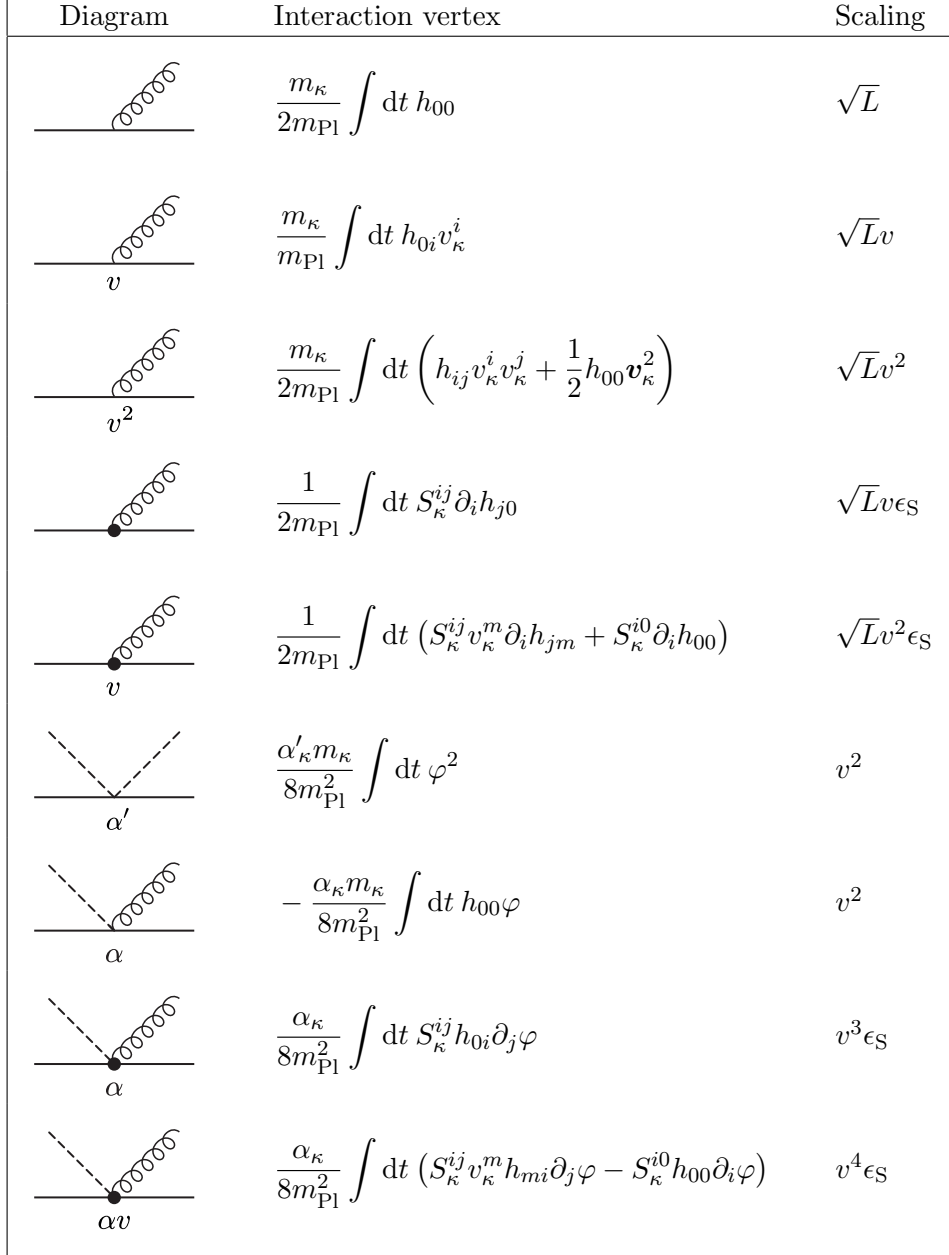 Diagram Interaction vertex Scaling
$\frac{m_\kappa}{2m_{\rm Pl}} \int {\rm d}t\, h_{00}$ $\sqrt{L}$
$v$ $\frac{m_\kappa}{m_{\rm Pl}} \int {\rm d}t\, h_{0i} v_\kappa^i$ $\sqrt{L}v$
$v^2$ $\frac{m_\kappa}{2m_{\rm Pl}} \int {\rm d}t \left( h_{ij} v_\kappa^i v_\kappa^j + \frac{1}{2} h_{00} \boldsymbol{v}_\kappa^2 \right)$ $\sqrt{L}v^2$
$\frac{1}{2m_{\rm Pl}} \int {\rm d}t\, S_\kappa^{ij} \partial_i h_{j0}$ $\sqrt{L}v\epsilon_{\rm S}$
$v$ $\frac{1}{2m_{\rm Pl}} \int {\rm d}t \left( S_\kappa^{ij} v_\kappa^m \partial_i h_{jm} + S_\kappa^{i0} \partial_i h_{00} \right)$ $\sqrt{L}v^2\epsilon_{\rm S}$
$\alpha'$ $\frac{\alpha'_\kappa m_\kappa}{8m_{\rm Pl}^2} \int {\rm d}t\, \varphi^2$ $v^2$
$\alpha$ $-\frac{\alpha_\kappa m_\kappa}{8m_{\rm Pl}^2} \int {\rm d}t\, h_{00} \varphi$ $v^2$
$\alpha$ $\frac{\alpha_\kappa}{8m_{\rm Pl}^2} \int {\rm d}t\, S_\kappa^{ij} h_{0i} \partial_j \varphi$ $v^3\epsilon_{\rm S}$
$\alpha v$ $\frac{\alpha_\kappa}{8m_{\rm Pl}^2} \int {\rm d}t \left( S_\kappa^{ij} v_\kappa^m h_{mi} \partial_j \varphi - S_\kappa^{i0} h_{00} \partial_i \varphi \right)$ $v^4\epsilon_{\rm S}$